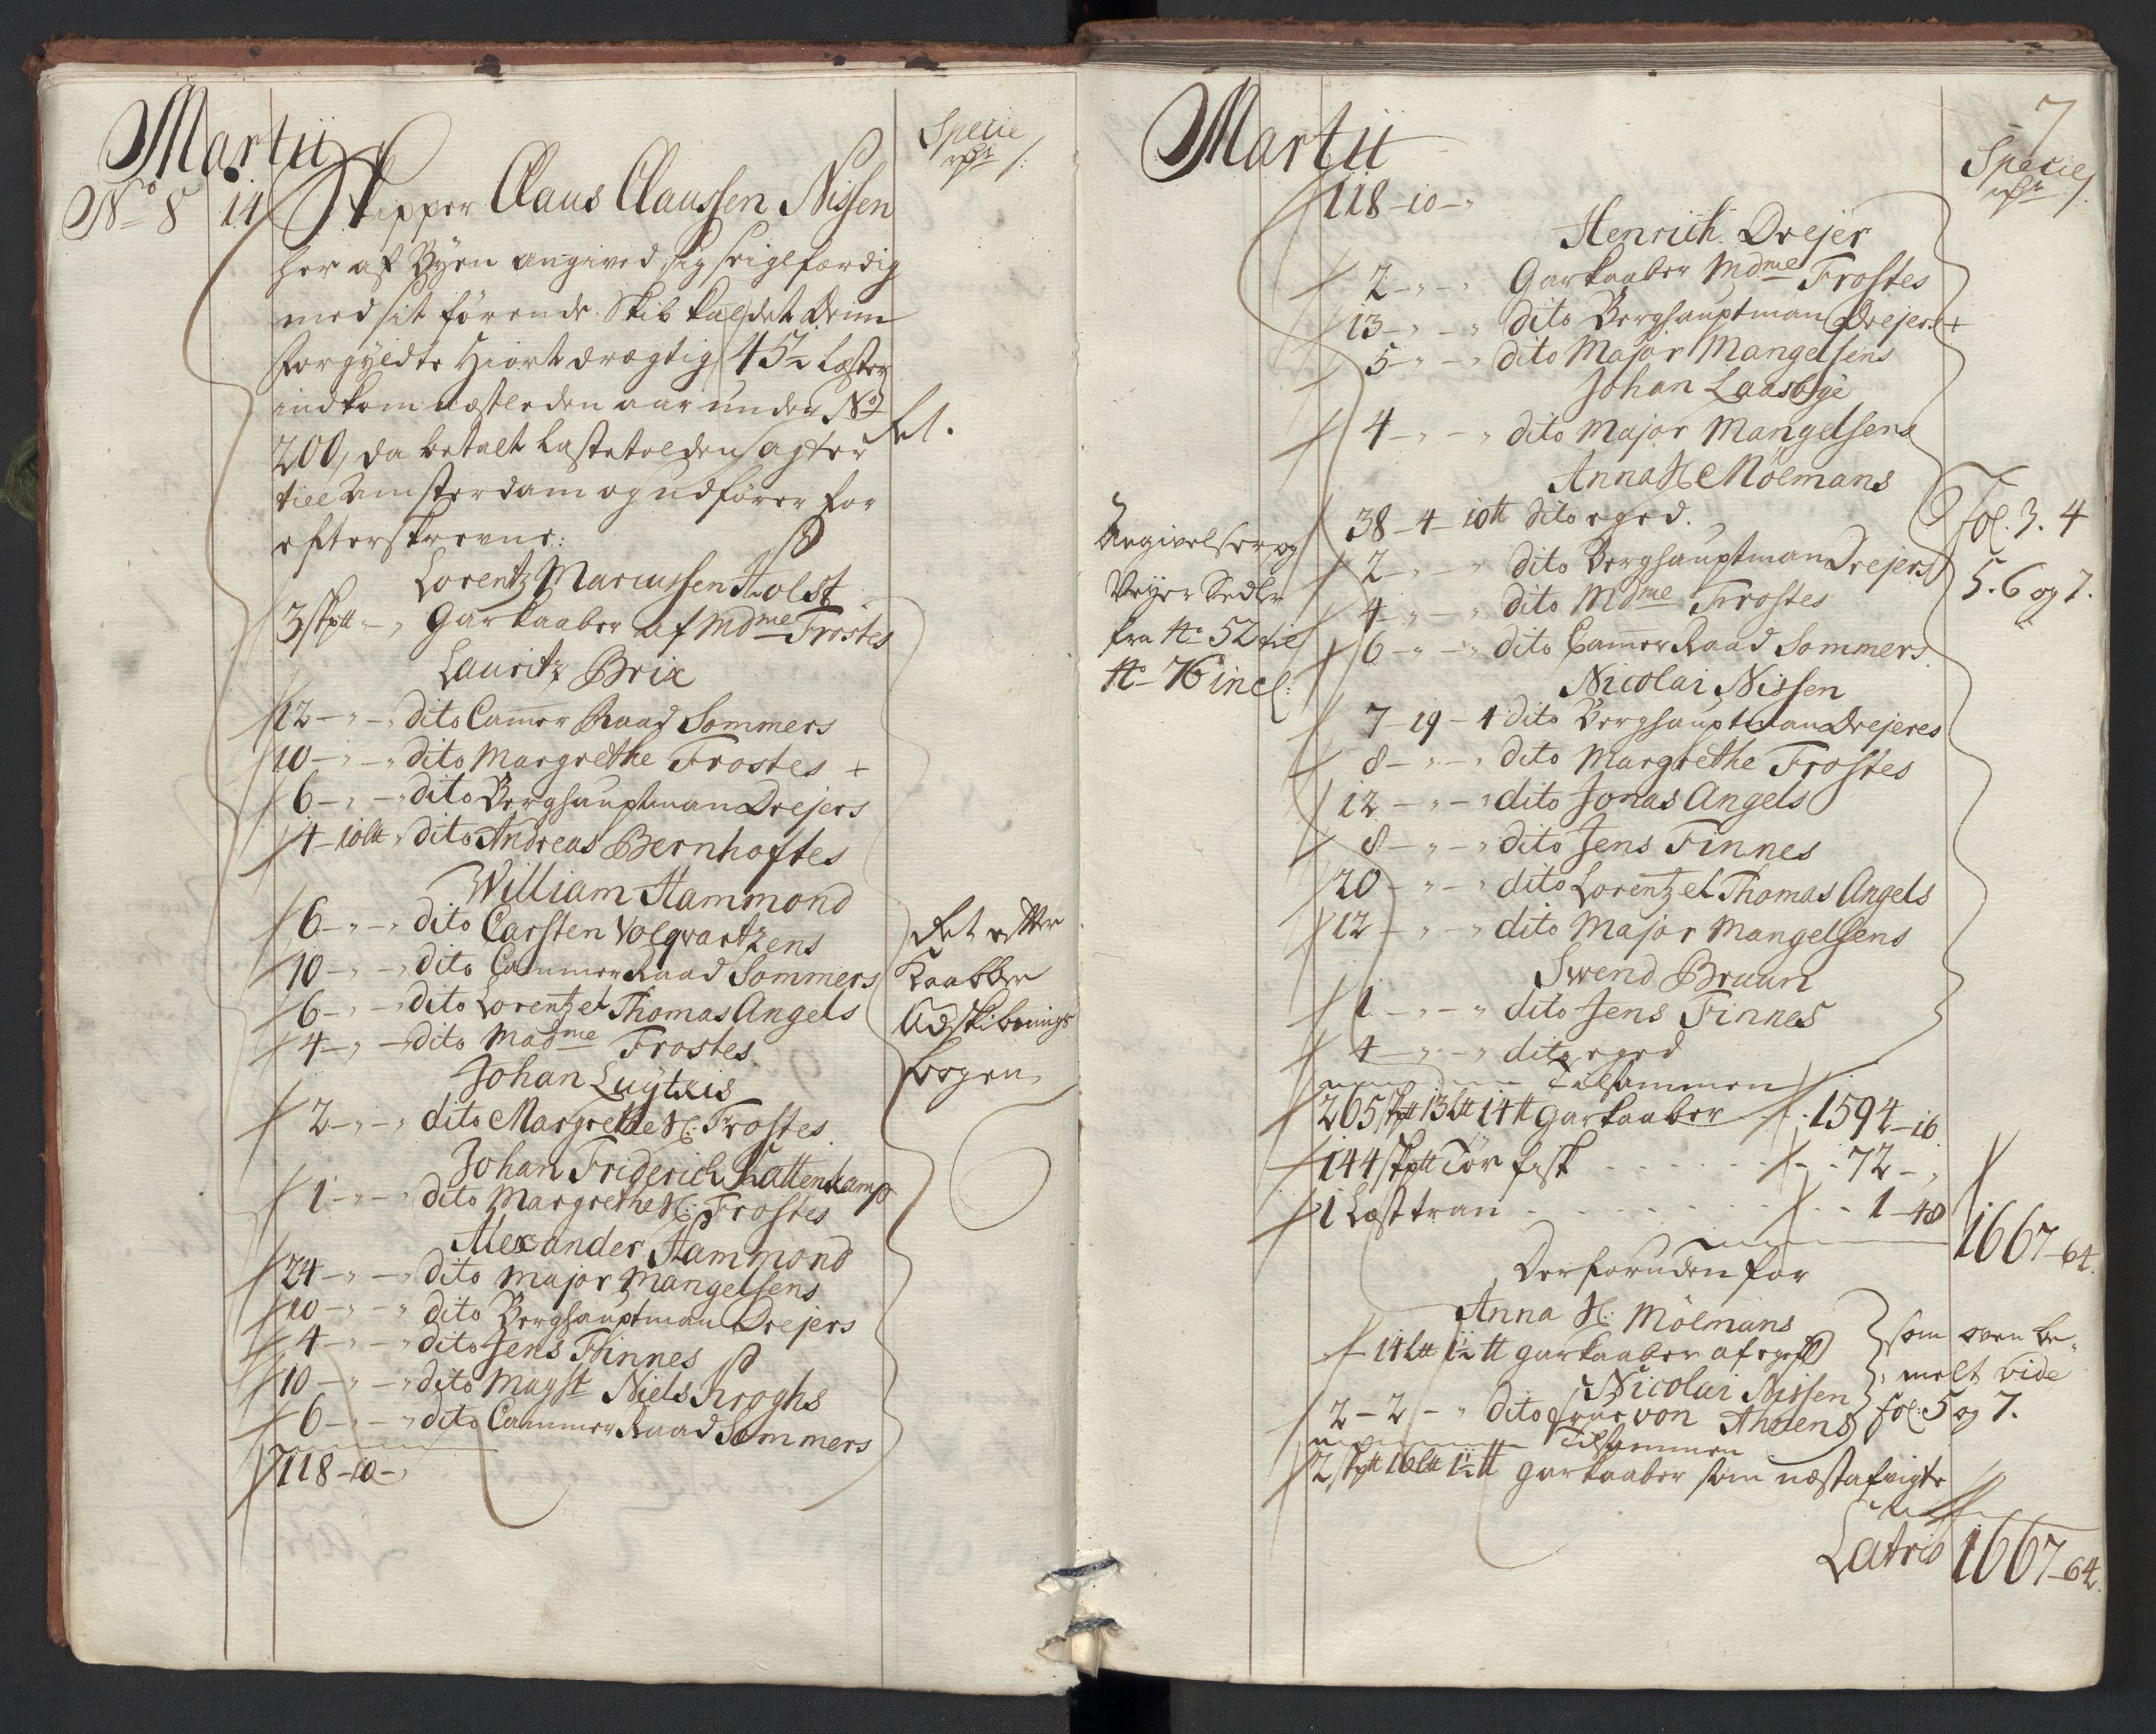 Martii
Specie
rdr /:
No 8 14 Skipper Claus Claussen Nissen
her af Byen angived sig seiglfærdig
med sit förende Skib kaldet Denn
forgyldte Hiort drægtig 45½ Læster
indkom næstleden aar under No
200, da betalt Lastetolden agter
till Amsterdam og udförer for
efterskrevne:
fol.
Lorentz Marcussen Holst
3 skptt - „ Garkaaber af Mdme Frostes
Lauritz Brix
12 - „ - „ dito Camer Raad Sommers
10 - „ - „ dito Margrethe Frostes +
6 - „ - „ dito Berghauptman Drejers
4 - 10 ltt „ dito Andreas Bernhoftes
William Hammond
6 - „ - „ dito Carsten Volqvartzens
10 - „ - „ dito Cammer Raad Sommers
6 - „ - „ dito Lorentz et Thomas Angels
4 - „ - dito Madme Frostes
Johan Luytkis
2 - „ - „ dito Margrethe H: Frostes
Johan Friderich Kattenkamp
1 - „ - „ dito Margrethe H: Frostes
Alexander Hammond
24 - „ - „ dito Major Mangelsens
10 - „ - „ dito Berghauptman Drejers
4 - „ - „ dito Jens Finnes
10 - „ - „ dito Magst Niels Kroghs
6 - „ - „ dito Cammer Raad Sommers
118 - 10 - „
Kaabber
Udskibnings
bogen
7
Martii
Specie
rdr /:
118 - 10 - „
Henrich Drejer
2 - „ - „ Garkaaber Mdme Frostes
13 - „ - „ dito Berghauptman Drejers +
5 - „ - „ dito Major Mangelsens
Johan Laasbye
4 - „ - „ dito Major Mangelsens
Anna H: Mölmans
38 - 4 - 10 tt dito eged.
2 - „ - „ dito Berghauptman Drejers
4 - „ - „ dito Mdme Frostes
6 - „ - „ dito Camer Raad Sommers
Angivelser og
Veyer Sedler
fra No 52 til
No 76 incl:
Fol. 3. 4
5. 6 og 7.
Nicolai Nissen
7 - 19 - 4 dito Berghauptman Drejeres
8 - „ - „ dito Margrethe Frostes
12 - „ - „ dito Jonas Angels
8 - „ - „ dito Jens Finnes
20 - „ - „ dito Lorentz et Thomas Angels
12 - „ - „ dito Major Mangelsens
Swend Bruun
1 - „ - „ dito Jens Finnes
4 - „ - „ dito eged
Tilsammen
265 skptt 13 ltt 14 tt garkaaber 1594 - 16
144 skptt Tör fisk - - - - - 72 - „
1 Læst tran - - - - - 1 - 48
1667 - 64.
Derforuden for
Anna H: Mölmans
14 ltt 1½ tt garkaaber af eget
Nicolai Nissen
2 - 2 - „ dito frue von Ahnens
som oven be-
melt vide
fol: 5 og 7.
Tilsammen
2 skptt 16 ltt 1½ tt garkaaber som næstafvigte
Latris 1667 - 64.